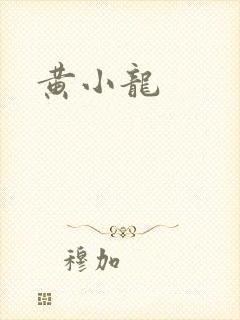 黄小龍
穆加